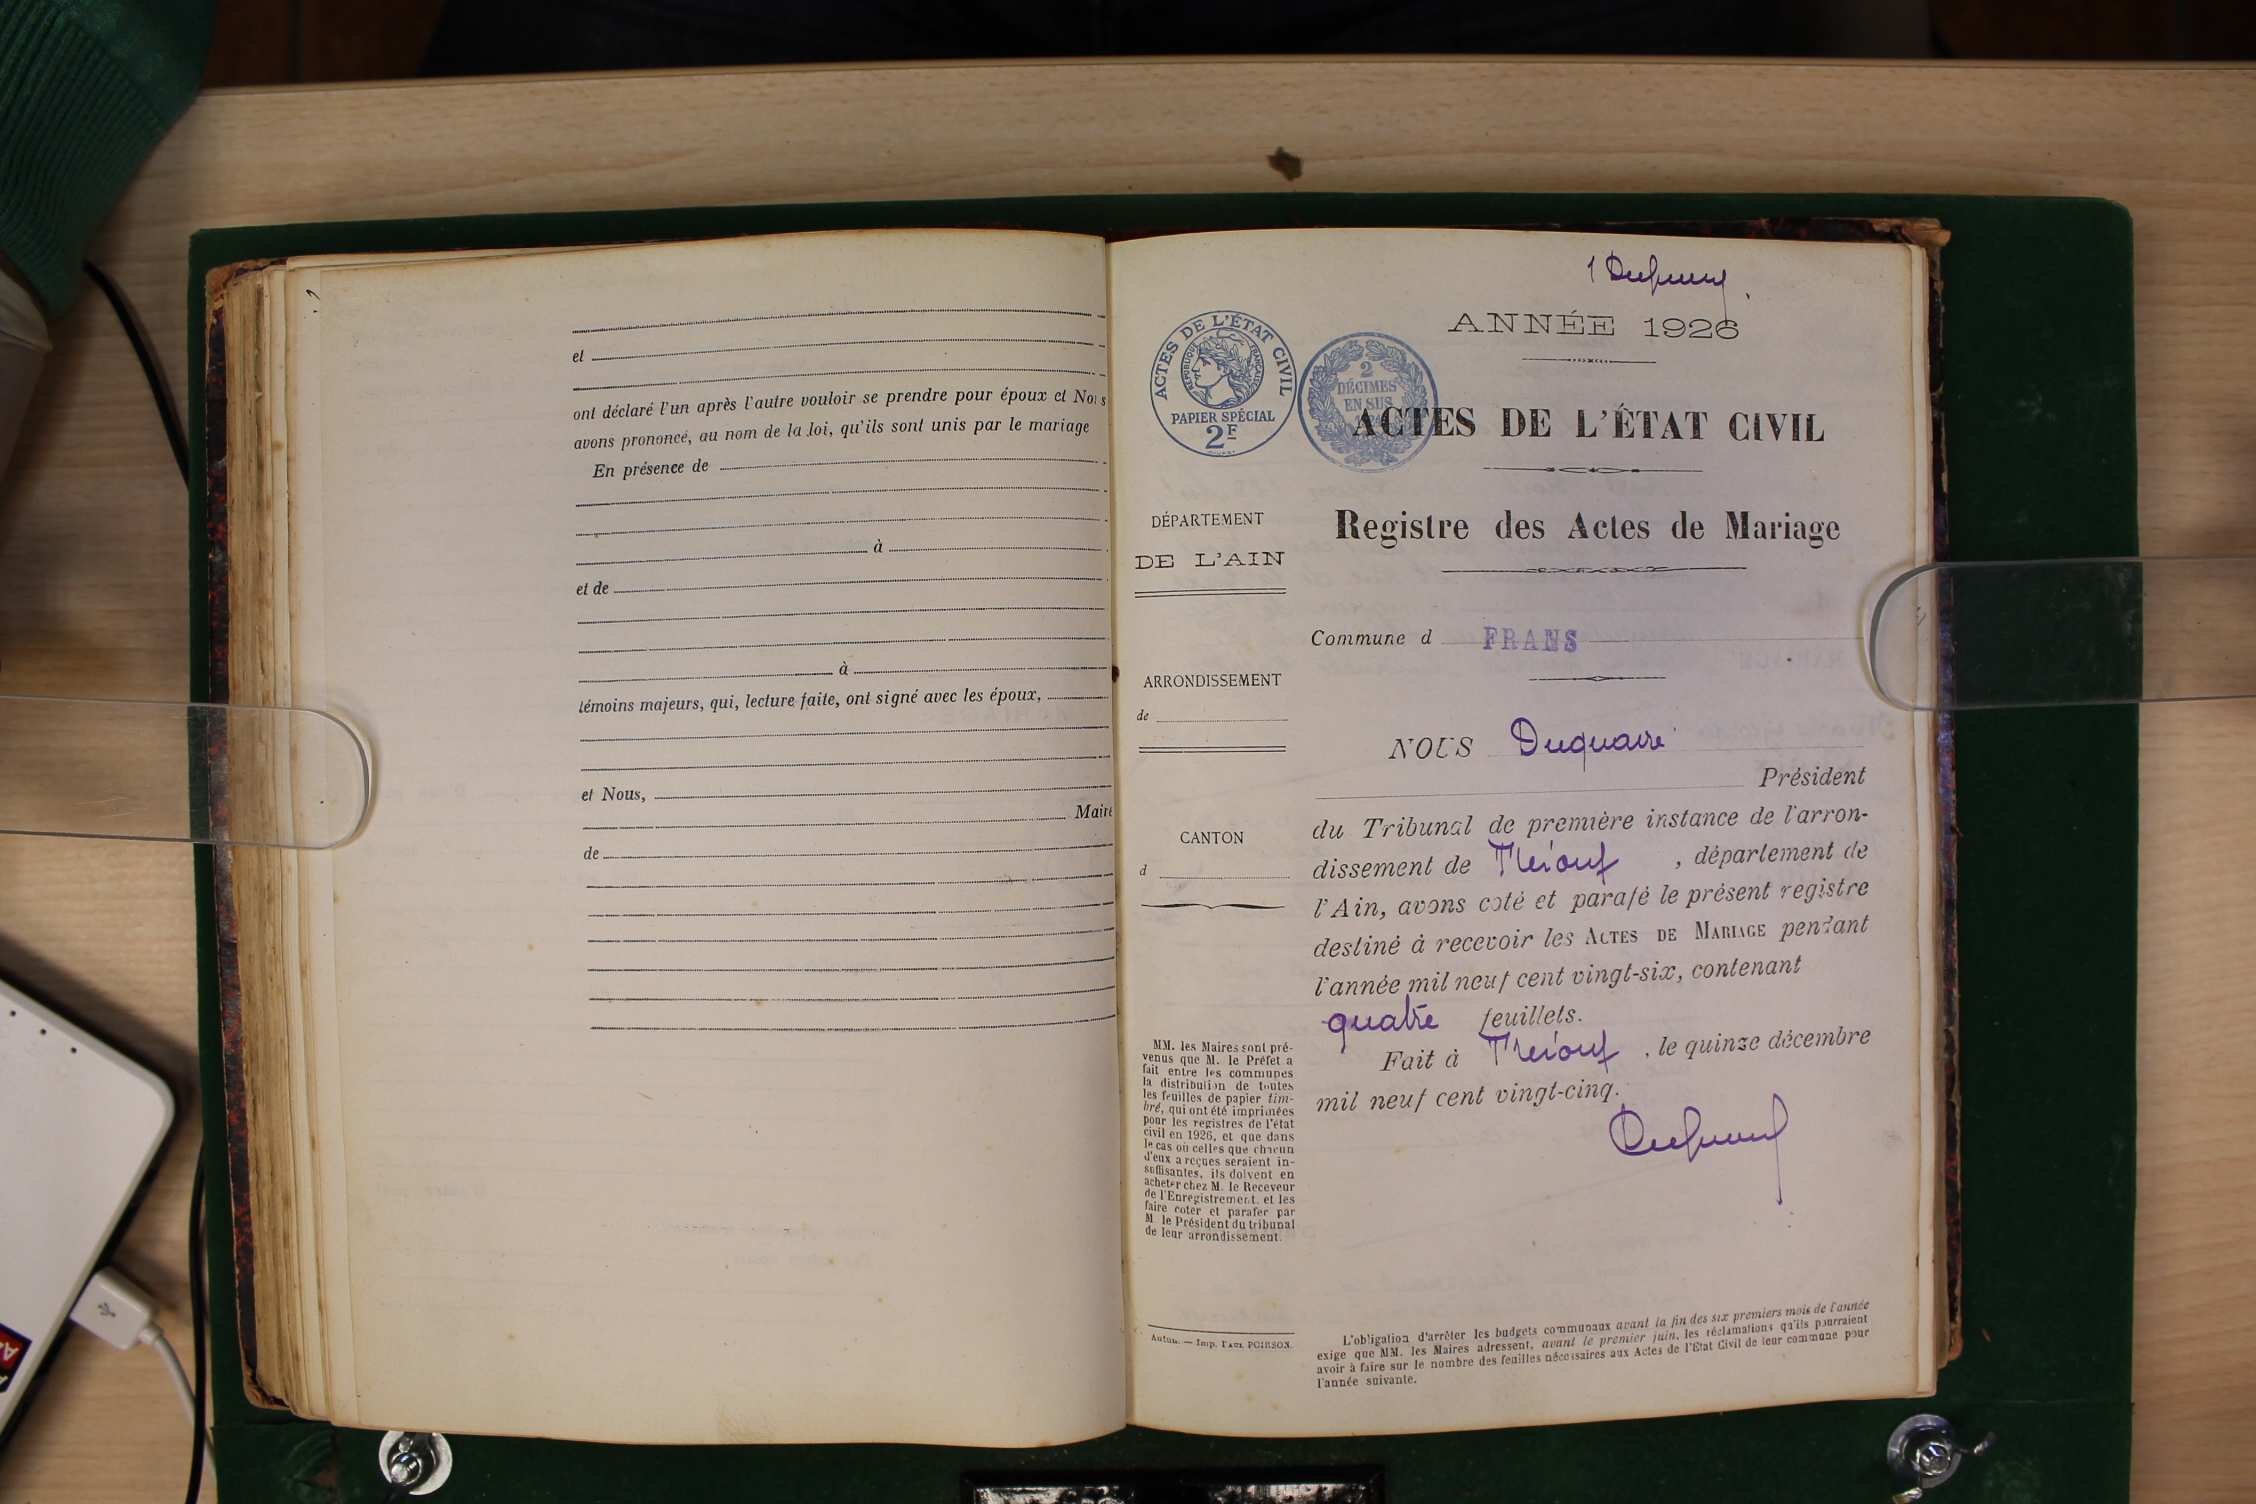 et
ont déclaré l'un après l'autre vouloir se prendre pour époux et Nous
avons prononcé, au nom de la loi, qu'ils sont unis par le mariage
En présence de
à
et de
à
témoins majeurs, qui, lecture faite, ont signé avec les époux,
et Nous,
Maire
de
1
ANNÉE 1926
ACTES DE L'ÉTAT CIVIL
RÉPUBLIQUE FRANÇAISE
PAPIER SPÉCIAL
2F
2
DÉCIMES
EN SUS
ACTES DE L'ÉTAT CIVIL
Registre des Actes de Mariage
DÉPARTEMENT
DE L'AIN
ARRONDISSEMENT
de
CANTON
d
MM. les Maires sont pré-
venus que M. le Préfet a
fait entre les communes
la distribution de toutes
les feuilles de papier tim-
bré, qui ont été imprimées
pour les registres de l'état
civil en 1926, et que dans
le cas où celles que chacun
d'eux a reçues seraient in-
suffisantes, ils doivent en
acheter chez M. le Receveur
de l'Enregistrement, et les
faire coter et parafer par
M. le Président du tribunal
de leur arrondissement.
Autun. — Imp. Paul POIRSON.
Commune d FRANS
NOUS Duquaire
Président
du Tribunal de première instance de l'arron-
dissement de Trévoux, département de
l'Ain, avons coté et parafé le présent registre
destiné à recevoir les ACTES DE MARIAGE pendant
l'année mil neuf cent vingt-six, contenant
quatre feuillets.
Fait à Trévoux, le quinze décembre
mil neuf cent vingt-cinq.
L'obligation d'arrêter les budgets communaux avant la fin des six premiers mois de l'année
exige que MM. les Maires adressent, avant le premier juin, les réclamations qu'ils pourraient
avoir à faire sur le nombre des feuilles nécessaires aux Actes de l'Etat Civil de leur commune pour
l'année suivante.